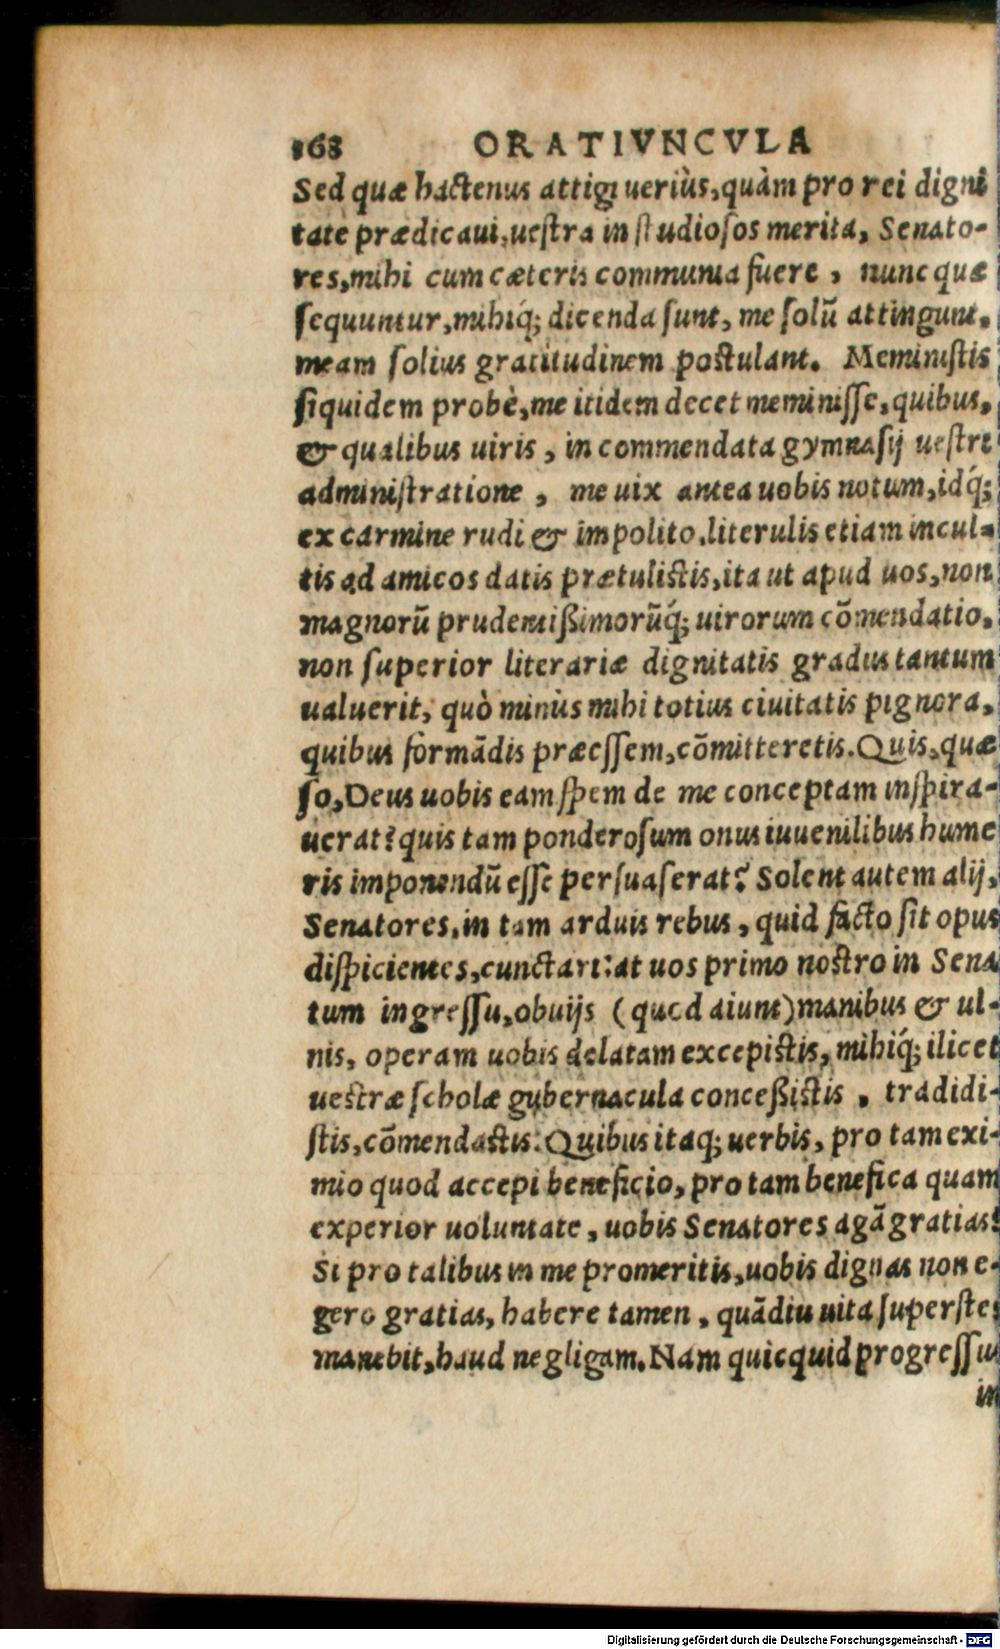 168 ORATIVNCVLA
Sed quæ hactenus attigi ueriùs, quàm pro rei digni
tate prædicaui, uestra in studiosos merita, Senato-
res, mihi cum cæteris communia fuere, nunc quæ
sequuntur, mihiq́; dicenda sunt, me solũ attingunt,
meam solius gratitudinem postulant. Meministis
siquidem probè, me itidem decet meminisse, quibus,
& qualibus uiris, in commendata gymnasij uestri
administratione, me uix antea uobis notum, idq́;
ex carmine rudi & impolito, literulis etiam incul-
tis ad amicos datis prætulistis, ita ut apud uos, non
magnorũ prudentißimorũq́; uirorum cõmendatio,
non superior literariæ dignitatis gradus tantum
ualuerit, quò minùs mihi totius ciuitatis pignora,
quibus formãdis præessem, cõmitteretis. Quis, quæ
so, Deus uobis eam spem de me conceptam inspira-
uerat? quis tam ponderosum onus iuuenilibus hume
ris imponendũ esse persuaserat? Solent autem alij,
Senatores, in tam arduis rebus, quid facto sit opus
dispicientes, cunctari: at uos primo nostro in Sena
tum ingressu, obuijs (quod aiunt) manibus & ul-
nis, operam uobis delatam excepistis, mihiq́; ilicet
uestræ scholæ gubernacula conceßistis, tradidi-
stis, cõmendastis. Quibus itaq; uerbis, pro tam exi-
mio quod accepi beneficio, pro tam benefica quam
experior uoluntate, uobis Senatores agã gratias?
Si pro talibus in me promeritis, uobis dignas non e-
gero gratias, habere tamen, quãdiu uita superstes
manebit, haud negligam. Nam quicquid progressus
in
Digitalisierung gefördert durch die Deutsche Forschungsgemeinschaft - DFG